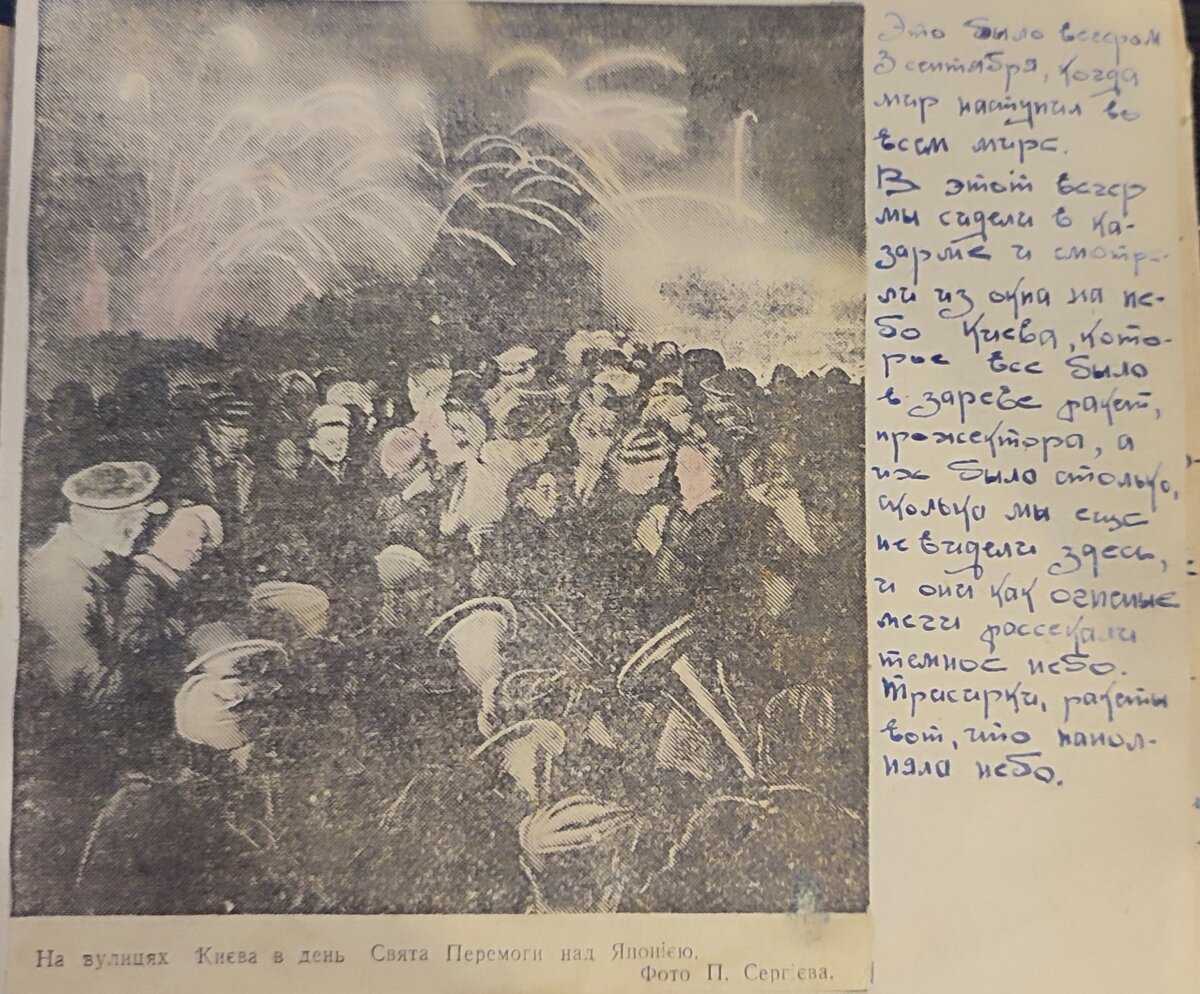 Это было вечером
3 сентября, когда
мир наступил во
всем мире.
В этот вечер
мы сидели в ка-
зарме и смотре-
ли из окна на не-
бо Киева, кото-
рое все было
в зареве ракет,
прожектора, а
их было столько,
сколько мы еще
не видели здесь,
и они как огненые
мечи рассекали
темное небо.
Трасирки, ракеты
вот, что напол-
няла небо.
На вулицях Києва в день Свята Перемоги над Японією.
Фото П. Сергієва.